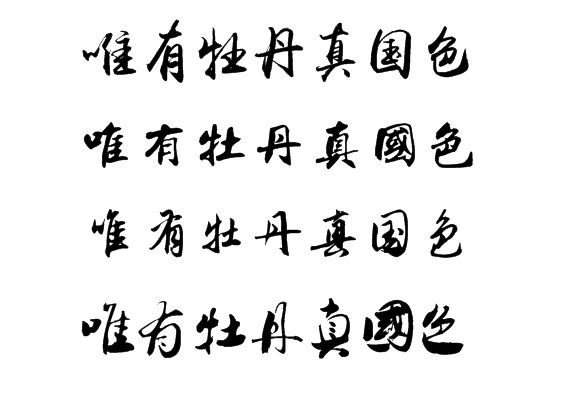 唯有牡丹真国色
唯有牡丹真國色
唯有牡丹真国色
唯有牡丹真國色